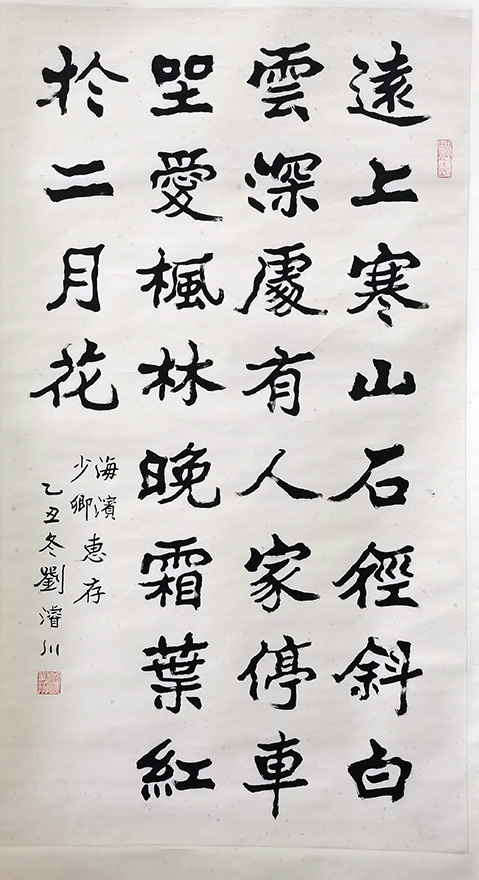 遠上寒山石徑斜白
雲深處有人家停車
坐愛楓林晚霜葉紅
於二月花
海濱
少卿 惠存
乙丑冬劉濬川